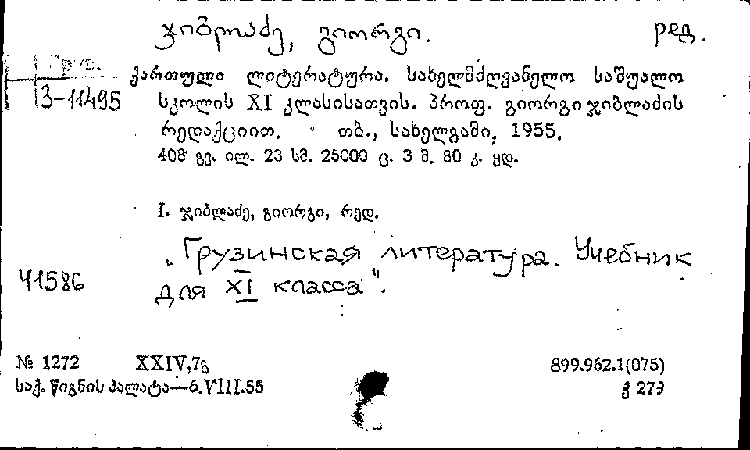 ჯიბლაძე, გიორგი. ред.
Груз.
3-11495
ქართული ლიტერატურა. სახელმძღვანელო საშუალო
სკოლის XI კლასისათვის. პროფ. გიორგი ჯიბლაძის
რედაქციით. თბ., სახელგამი, 1955.
408 გვ. ილ. 23 სმ. 25000 ც. 3 მ. 80 კ. ყდ.
I. ჯიბლაძე, გიორგი, რედ.
„Грузинская литература. Учебник
41586
для XI класса".
№ 1272 XXIV,7ბ 899.962.1(075)
საქ. წიგნის პალატა—6.VIII.55 ქ 273